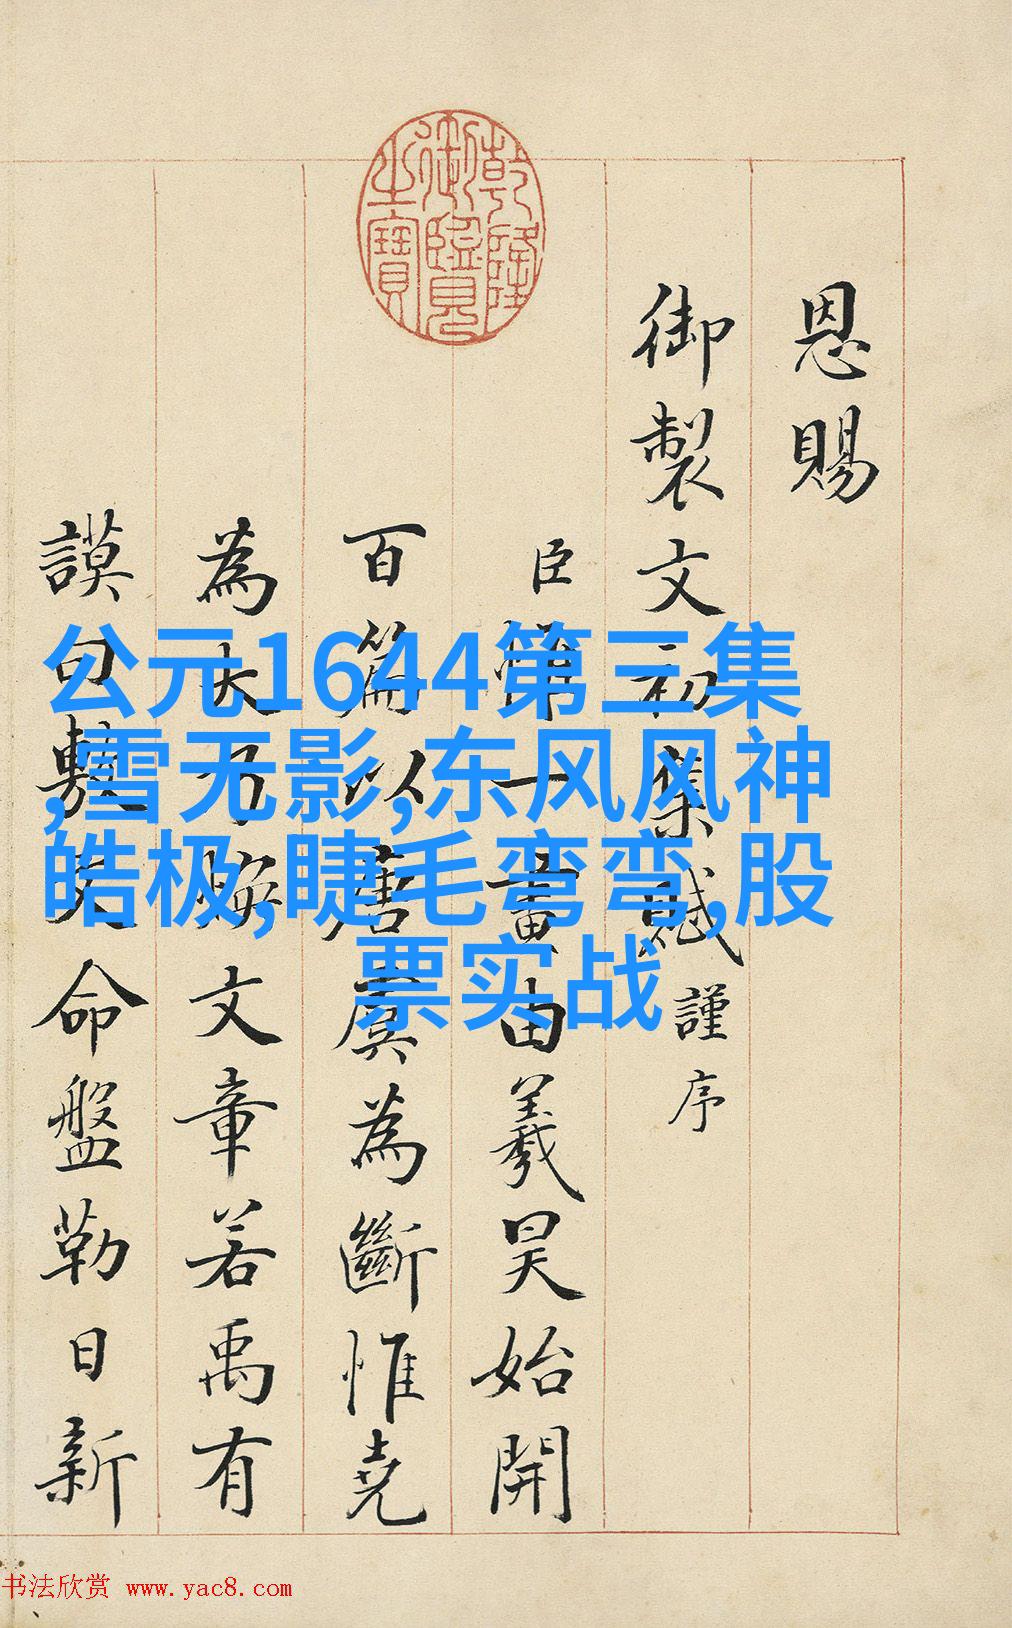 乾隆御覽之寶
恩賜
御製文初集賦謹序
臣一畫由羲昊始開
百篇以唐虞為斷惟堯
為大乃煥文章若禹有
謨曰敷命盤勒日新
公元1644第三集
,雪无影,东风风神
皓极,睫毛弯弯,股
票实战
书法欣赏 www.yac8.com